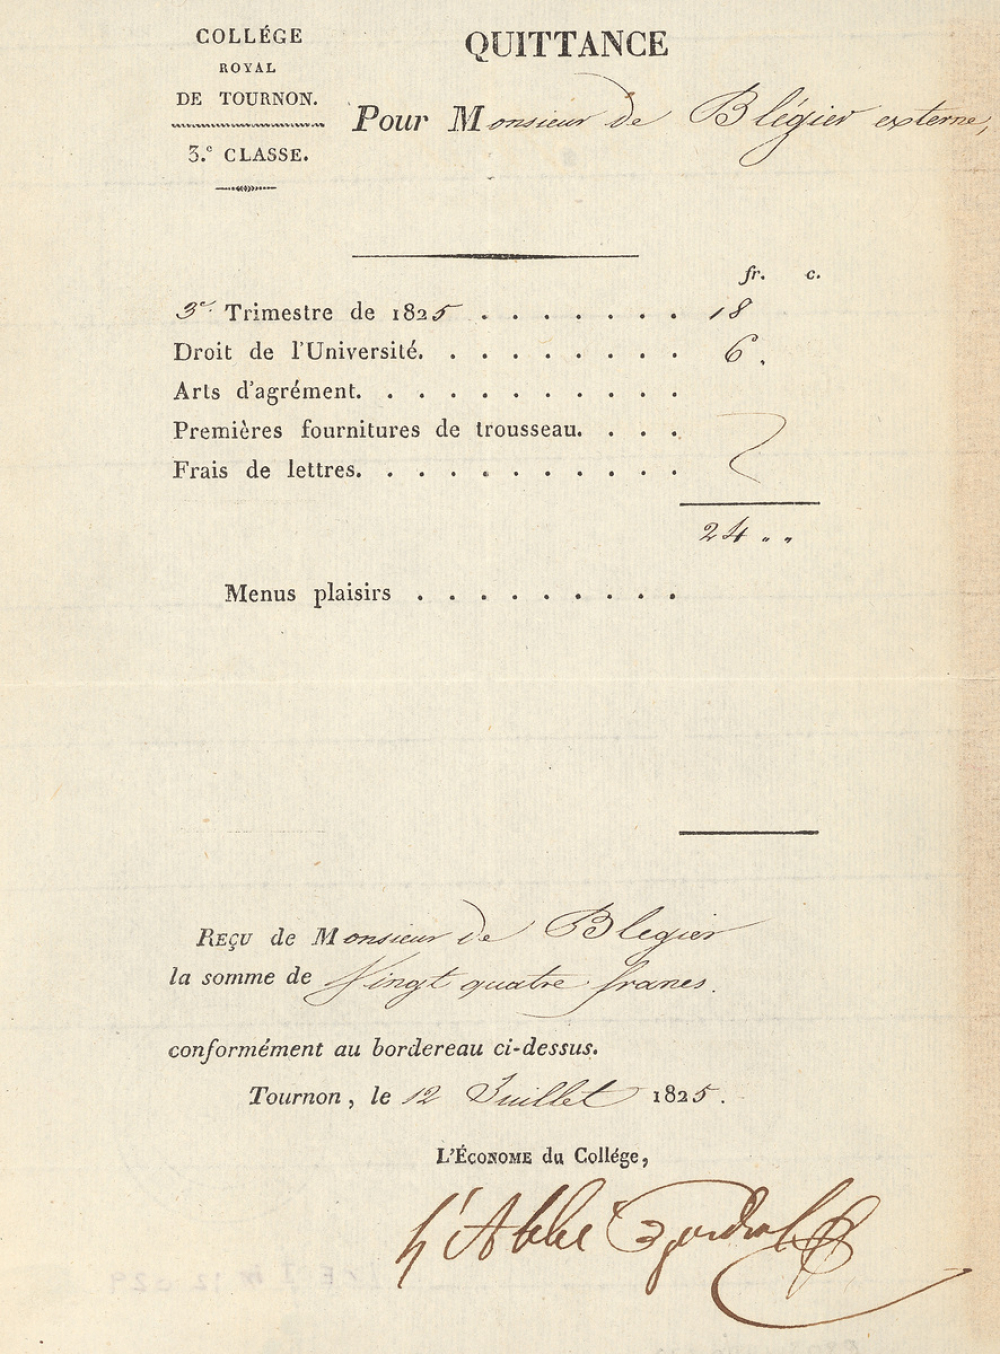 COLLÉGE
ROYAL
DE TOURNON.
3.e CLASSE.
QUITTANCE
Pour Monsieur de Blégier externe,
fr. c.
3e Trimestre de 1825 . . . . . . . 18
Droit de l'Université. . . . . . . . . 6.
Arts d'agrément. . . . . . . . . . .
Premières fournitures de trousseau. . . .
Frais de lettres. . . . . . . . . . .
24 " "
Menus plaisirs . . . . . . . . .
REÇU de Monsieur de Blegier
la somme de Vingt quatre francs.
conformément au bordereau ci-dessus.
Tournon, le 12 Juillet 1825.
L'ÉCONOME du Collége,
L'Abbé